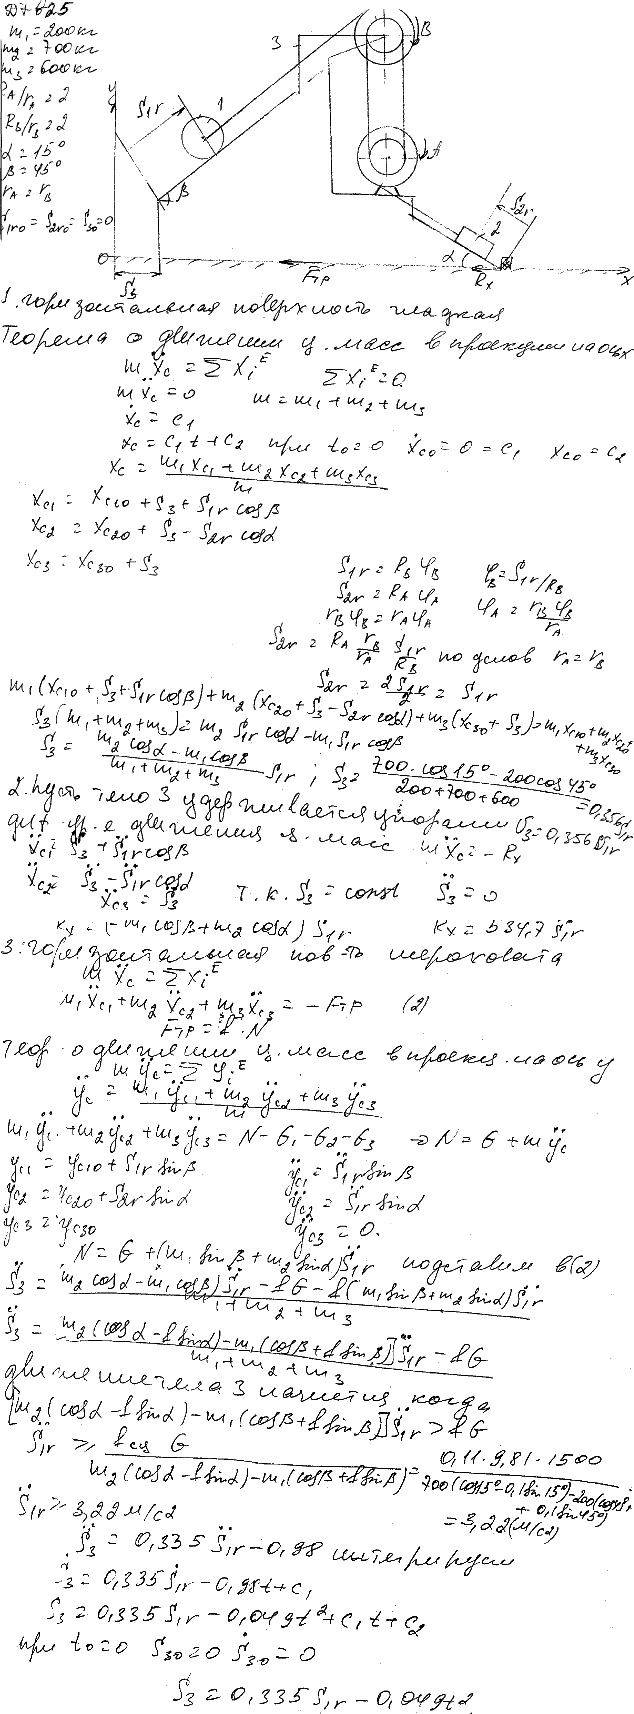 D7 В25
m₁ = 200 кг
m₂ = 700 кг
m₃ = 600 кг
R_A/r_A = 2
R_B/r_B = 2
α = 15°
β = 45°
r_A = r_B
S₁r₀ = S₂r₀ = S₃₀ = 0
y S₁r 1 3 B A β S₂r 2 α
O S₃ Fтр Rx x
1. горизонтальная поверхность гладкая
Теорема о движении ц. масс в проекции на ось x
mẍc = ΣXiᴱ ΣXiᴱ = 0
mẍc = 0 m = m₁ + m₂ + m₃
ẋc = C₁
xc = C₁t + C₂ при t₀ = 0 ẋc₀ = 0 = C₁ xc₀ = C₂
xc = (m₁xc₁ + m₂xc₂ + m₃xc₃)/m
xc₁ = xc₁₀ + S₃ + S₁r cosβ
xc₂ = xc₂₀ + S₃ - S₂r cosα
xc₃ = xc₃₀ + S₃
S₁r = R_B φ_B φ_B = S₁r/R_B
S₂r = R_A φ_A φ_A = r_B φ_B/r_A
r_B φ_B = r_A φ_A
S₂r = R_A r_B/r_A S₁r/R_B по услов r_A = r_B
S₂r = 2S₁r/2 = S₁r
m₁(xc₁₀ + S₃ + S₁r cosβ) + m₂(xc₂₀ + S₃ - S₂r cosα) + m₃(xc₃₀ + S₃) = m₁xc₁₀ + m₂xc₂₀ + m₃xc₃₀
S₃(m₁ + m₂ + m₃) = m₂ S₁r cosα - m₁S₁r cosβ
S₃ = (m₂ cosα - m₁ cosβ)/(m₁ + m₂ + m₃) S₁r ; S₃ = (700·cos15° - 200cos45°)/(200 + 700 + 600) = 0,356 S₁r
2. пусть тело 3 удерживается упорами V₃ = 0,356 Ṡ₁r
диф. ур-е движения ц. масс mẍc = -Rx
ẍc₁ = S̈₃ + S̈₁r cosβ
ẍc₂ = S̈₃ - S̈₁r cosα
ẍc₃ = S̈₃ т.к. S₃ = const S̈₃ = 0
Rx = (-m₁ cosβ + m₂ cosα) S̈₁r Rx = 534,7 S̈₁r
3. горизонтальная пов-ть шероховата
mẍc = ΣXiᴱ
m₁ẍc₁ + m₂ẍc₂ + m₃ẍc₃ = -Fтр (2)
Fтр = f·N
Теор. о движении ц. масс в проекц. на ось y
mÿc = Σyiᴱ
ÿc = (m₁ÿc₁ + m₂ÿc₂ + m₃ÿc₃)/m
m₁ÿc₁ + m₂ÿc₂ + m₃ÿc₃ = N - G₁ - G₂ - G₃ → N = G + mÿc
yc₁ = yc₁₀ + S₁r sinβ ÿc₁ = S̈₁r sinβ
yc₂ = yc₂₀ + S₂r sinα ÿc₂ = S̈₁r sinα
yc₃ = yc₃₀ ÿc₃ = 0.
N = G + (m₁ sinβ + m₂ sinα)S̈₁r подставим в (2)
S̈₃ = ((m₂ cosα - m₁ cosβ)S̈₁r - fG - f(m₁ sinβ + m₂ sinα)S̈₁r)/(m₁ + m₂ + m₃)
S̈₃ = ([m₂(cosα - f sinα) - m₁(cosβ + f sinβ)]S̈₁r - fG)/(m₁ + m₂ + m₃)
движение тела 3 начнется, когда
[m₂(cosα - f sinα) - m₁(cosβ + f sinβ)]S̈₁r > fG
S̈₁r ≥ fсц G/(m₂(cosα - f sinα) - m₁(cosβ + f sinβ)) = 0,11·9,81·1500/(700(cos15° - 0,1sin15°) - 200(cos45° + 0,1sin45°)) = 3,22 (м/с2)
S̈₁r ≥ 3,22 м/с2
S̈₃ = 0,335 S̈₁r - 0,98 интегрируем
Ṡ₃ = 0,335 Ṡ₁r - 0,98t + C₁
S₃ = 0,335 S₁r - 0,049t² + C₁t + C₂
при t₀ = 0 S₃₀ = 0 Ṡ₃₀ = 0
S₃ = 0,335 S₁r - 0,049t2